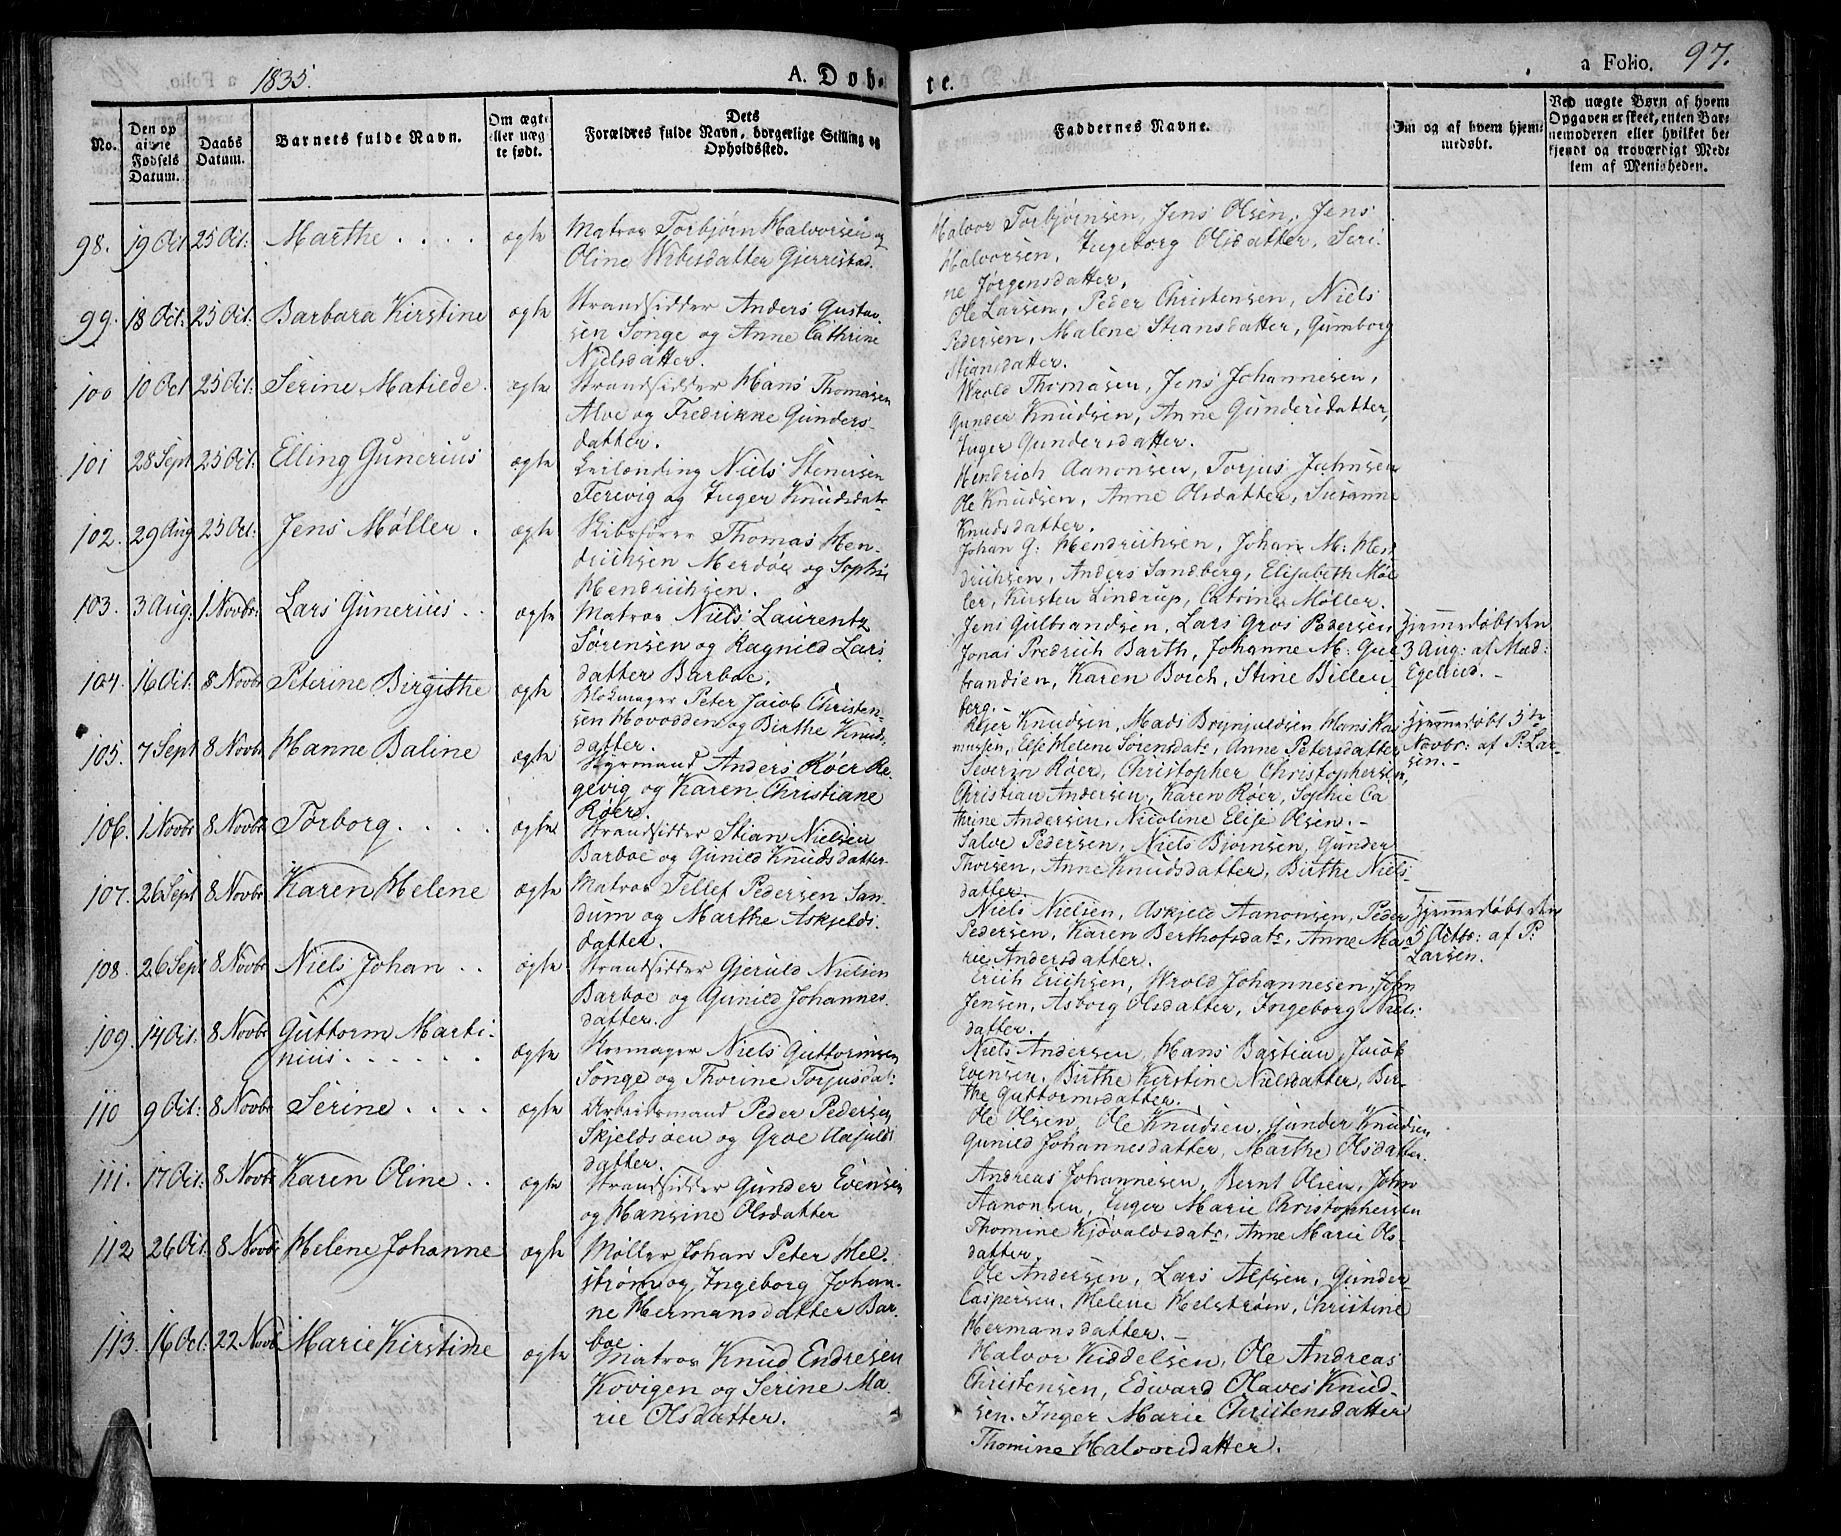 1835.
A. Døb-
te.
a Folio. 97.
No.
Den op
givne
Fødsels
Datum.
Daabs
Datum.
Barnets fulde Navn.
Om ægte
eller uæg
te født.
Dets
Forældres fulde Navn, borgerlige Stilling og
Opholdssted.
Faddernes Navne.
Om og af hvem hjem-
medøbt.
Ved uægte Børn af hvem
Opgaven er skeet, enten Bar-
nemoderen eller hvilket be-
kjendt og troværdigt Med-
lem af Menigheden.
98. 19 Oct 25 Oct: Marthe . . . . ægte
Matros Torbjørn Halvorsen og
Oline Wibesdatter Gjerrestad.
Halvor Torbjørnsen, Jens Olsen, Jens
Halvorsen, Ingeborg Olsdatter, Seri-
ne Jørgensdatter.
99. 18 Oct: 25 Oct: Barbara Kirstine ægte
Strandsidder Anders Gustav-
sen Songe og Anne Cathrine
Nielsdatter.
Ole Larsen, Peder Christensen, Niels
Pedersen, Malene Stiansdatter, Gumborg
Stiansdatter.
100 10 Oct 25 Oct: Serine Matilde. ægte
Strandsidder Hans Thomasen
Alve og Fredrikke Gunders-
datter.
Wrold Thomasen, Jens Johannesen,
Gunder Knudsen, Anne Gundersdatter,
Inger Gundersdatter.
101 28 Sept 25 Oct: Elling Gunerius ægte
Leilænding Niels Stenersen
Ferevig og Inger Knudsdatr
Hendrich Aanonsen, Torjus Jahnsen
Ole Knudsen, Anne Olsdatter, Susanne
Knudsdatter.
102. 29 Aug 25 Oct: Jens Møller . ægte
Skibsfører Thomas Hen-
drichsen Merdøe og Sophie
Hendrichsen.
Johan G: Hendrichsen, Johan M: Hen
drichsen, Anders Sandberg, Elisabeth Møl
ler, Kirsten Lindrup, Catrine Møller.
103. 3 Aug: 1 Novbr: Lars Gunerius . . ægte
Matros Niels Laurentz
Sørensen og Ragnild Lars-
datter Barboe.
Jens Gulbrandsen, Lars Gros Pedersen
Jonas Fredrich Barth, Johanne M: Gul
brandsen, Karen Borch, Stine Billen-
berg.
Hjemmedøbt den
3 Aug: af Mad:
Egelund. -
104. 16 Oct. 8 Novbr Peterine Birgithe ægte
Blokmager Peter Jacob Christen-
sen Hovodden og Birthe Knuds-
datter.
Rejer Knudsen, Mads Brynjuldsen, Hans Ras
mussen, Else Helene Sørensdatr, Anne Petersdatter
Hjemmedøbt 5te
Novbr: af P: Lar-
sen. -
105. 7 Sept 8 Novbr Hanne Baline ægte
Styrmand Anders Røer Re-
gevig og Karen Christiane
Røer.
Severin Røer, Christopher Christophersen,
Christian Andersen, Karen Røer, Sophie Ca
thrine Andersen, Nicoline Elise Olsen. -
106. 1 Novbr 8 Novbr Torborg . . . . ægte
Strandsidder Stian Nielsen
Barboe og Gunild Knudsdatter
Salve Pedersen, Niels Bjørnsen, Gunder
Thorsen, Anne Knudsdatter, Birthe Niels-
datter.
107. 26 Sept 8 Novbr Karen Helene ægte
Matros Tellef Pedersen San-
dum og Marthe Askjelds-
datter.
Niels Nielsen, Askjeld Aanonsen, Peder
Pedersen, Karen Berthofsdatr, Anne Ma-
rie Andersdatter.
Hjemmedøbt den
5 Octbr: af P:
Larsen.
108. 26 Sept 8 Novbr Niels Johan . . ægte
Strandsidder Gjeruld Nielsen
Barboe og Gunild Johannes-
datter.
Erich Erichsen, Wrold Johannesen, John
Jensen, Asborg Olsdatter, Ingeborg Niels-
datter.
109. 14 Oct. 8 Novbr Guttorm Marti-
nius. . . . . . ægte
Kosmager Niels Guttormsen
Songe og Thorine Torjusdat:
Niels Andersen, Hans Bastian, Jacob
Evensen, Birthe Kirstine Nielsdatter, Bir-
the Guttormsdatter.
110 9 Oct: 8 Novbr Serine . . . . ægte
Arbeidsmand Peder Pedersen
Skjeldsøen og Groe Aasulds
datter.
Ole Olsen, Ole Knudsen, Gunder Knudsen
Gunild Johannesdatter, Marthe Olsdatter.
111. 17 Oct. 8 Novbr Karen Oline . . ægte
Strandsidder Gunder Evensen
og Hansine Olsdatter
Andreas Johannesen, Bernt Olsen, John
Aanonsen, Inger Marie Christophersen
Thomine Kjøvaldsdatr, Anne Marie Ols-
datter.
112 26 Oct. 8 Novbr Helene Johanne ægte
Møller Johan Peter Hel-
strøm og Ingeborg Johan-
ne Hermansdatter Bar-
boe
Ole Andersen, Lars Alfsen, Gunder
Caspersen, Helene Helstrøm, Christine
Hermansdatter. -
113. 16 Oct. 22 Novb Marie Kirstine ægte
Matros Knud Endresen
Kovigen og Serine Ma-
rie Olsdatter.
Halvor Kiddelsen, Ole Andreas
Christensen, Edward Olaves Knud-
sen. Inger Marie Christensdatter
Thomine Halvorsdatter.